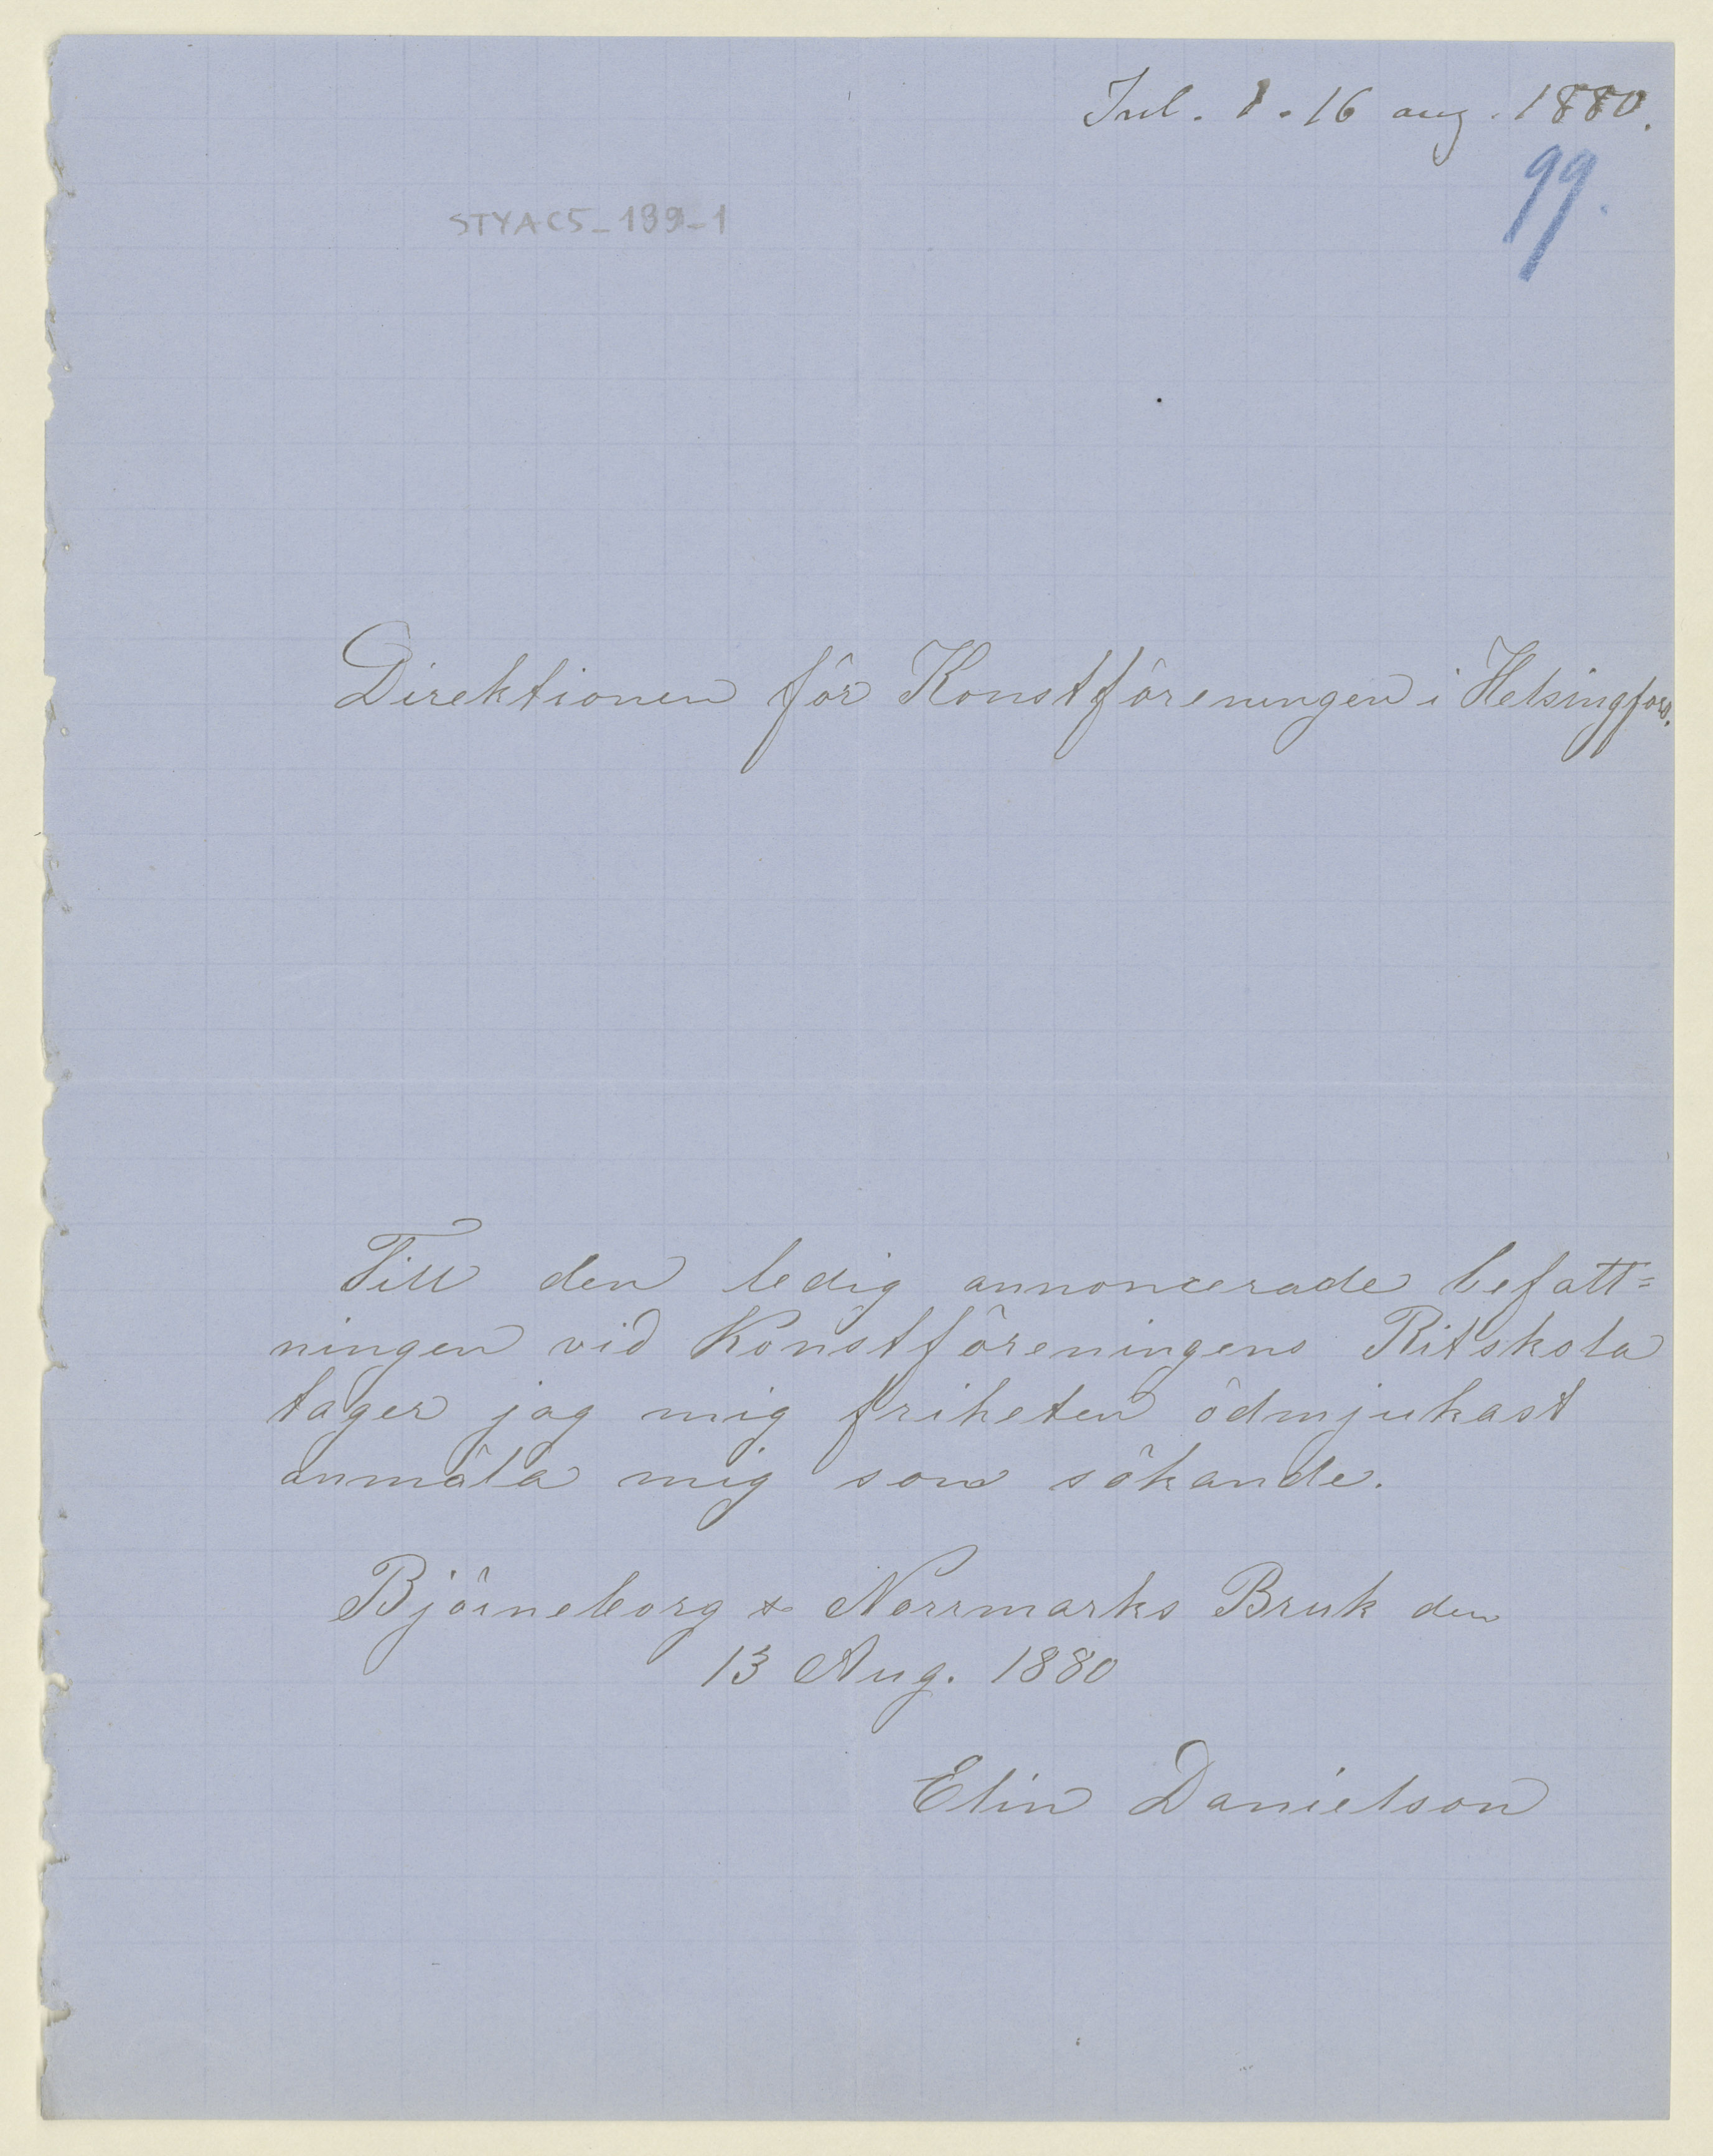 Inl. d. 16 aug. 1880.
99.
STYAC5_139-1
Direktionen för Konstföreningen i Helsingfors.
Till den ledig annoncerade befatt=
ningen vid Konstföreningens Ritskola
tager jag mig friheten ödmjukast
anmäla mig som sökande.
Björneborg & Norrmarks Bruk den
13 Aug. 1880
Elin Danielson